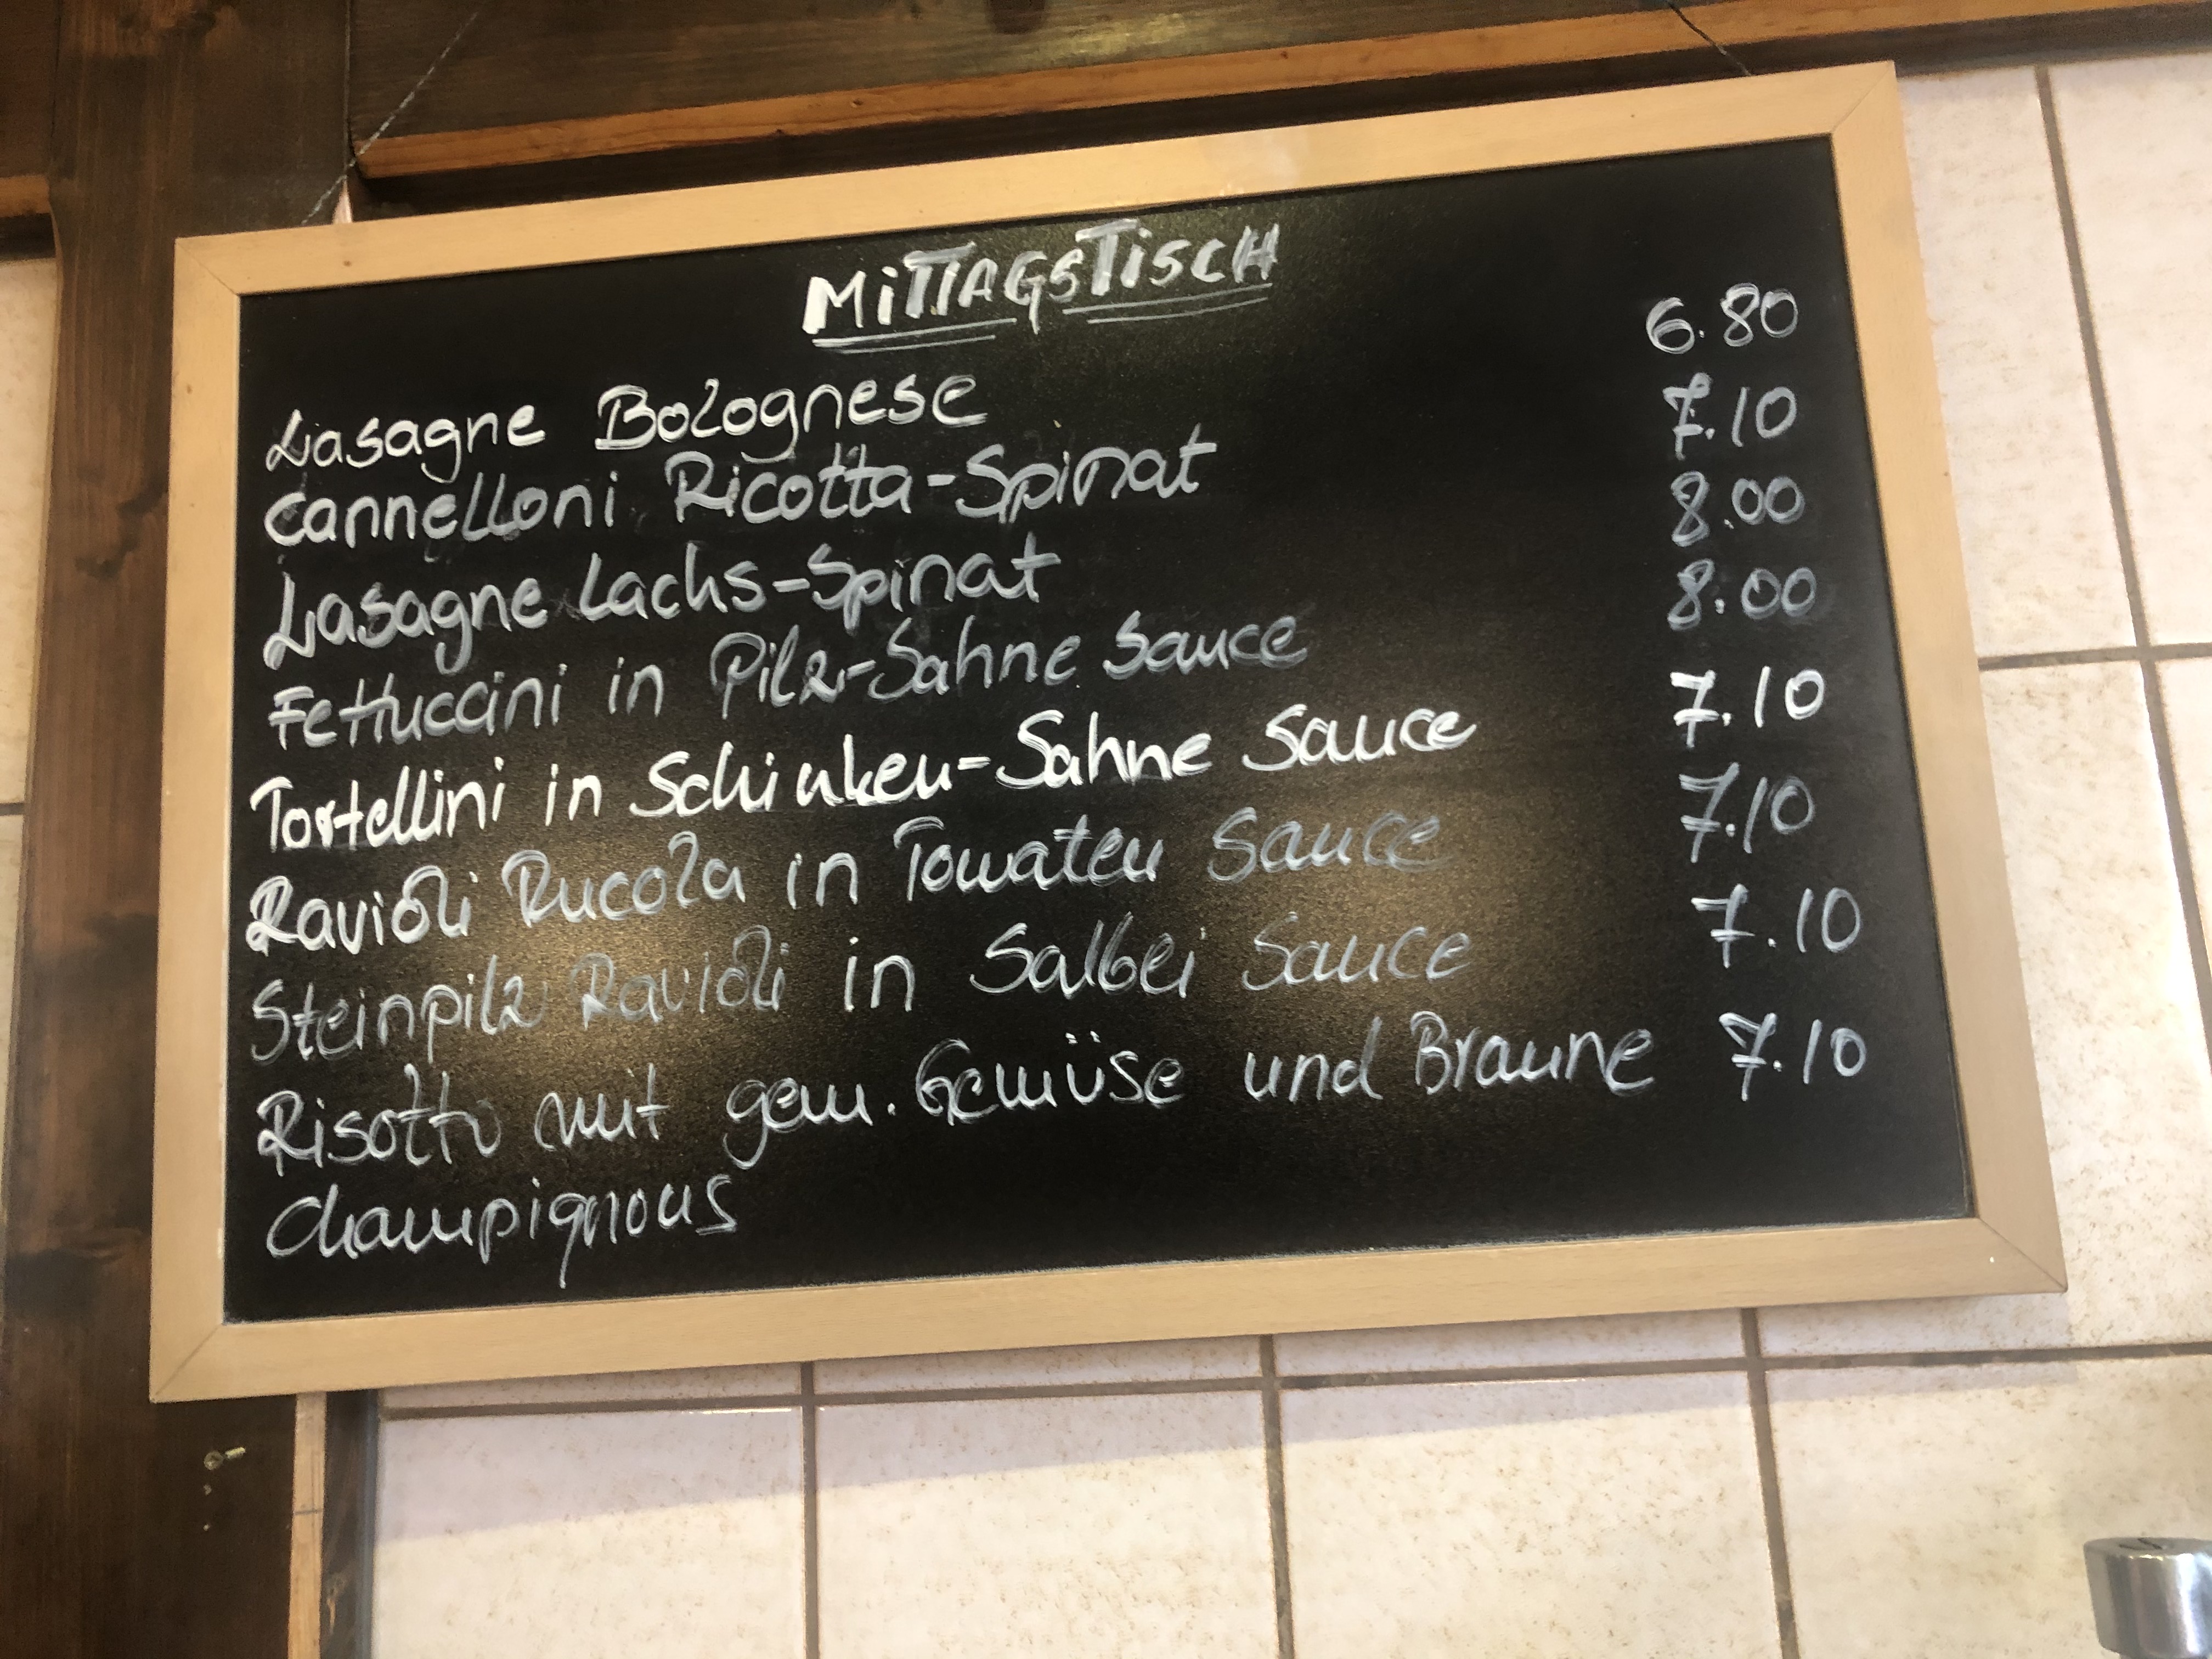 MiTTAGSTiSCH
Lasagne Bolognese 6.80
Cannelloni Ricotta-Spinat 7.10
Lasagne Lachs-Spinat 8.00
Fettuccini in Pilz-Sahne Sauce 8.00
Tortellini in Schinken-Sahne Sauce 7.10
Ravioli Rucola in Tomaten Sauce 7.10
Steinpilz Ravioli in Salbei Sauce 7.10
Risotto mit gem. Gemüse und Braune 7.10
Champignons